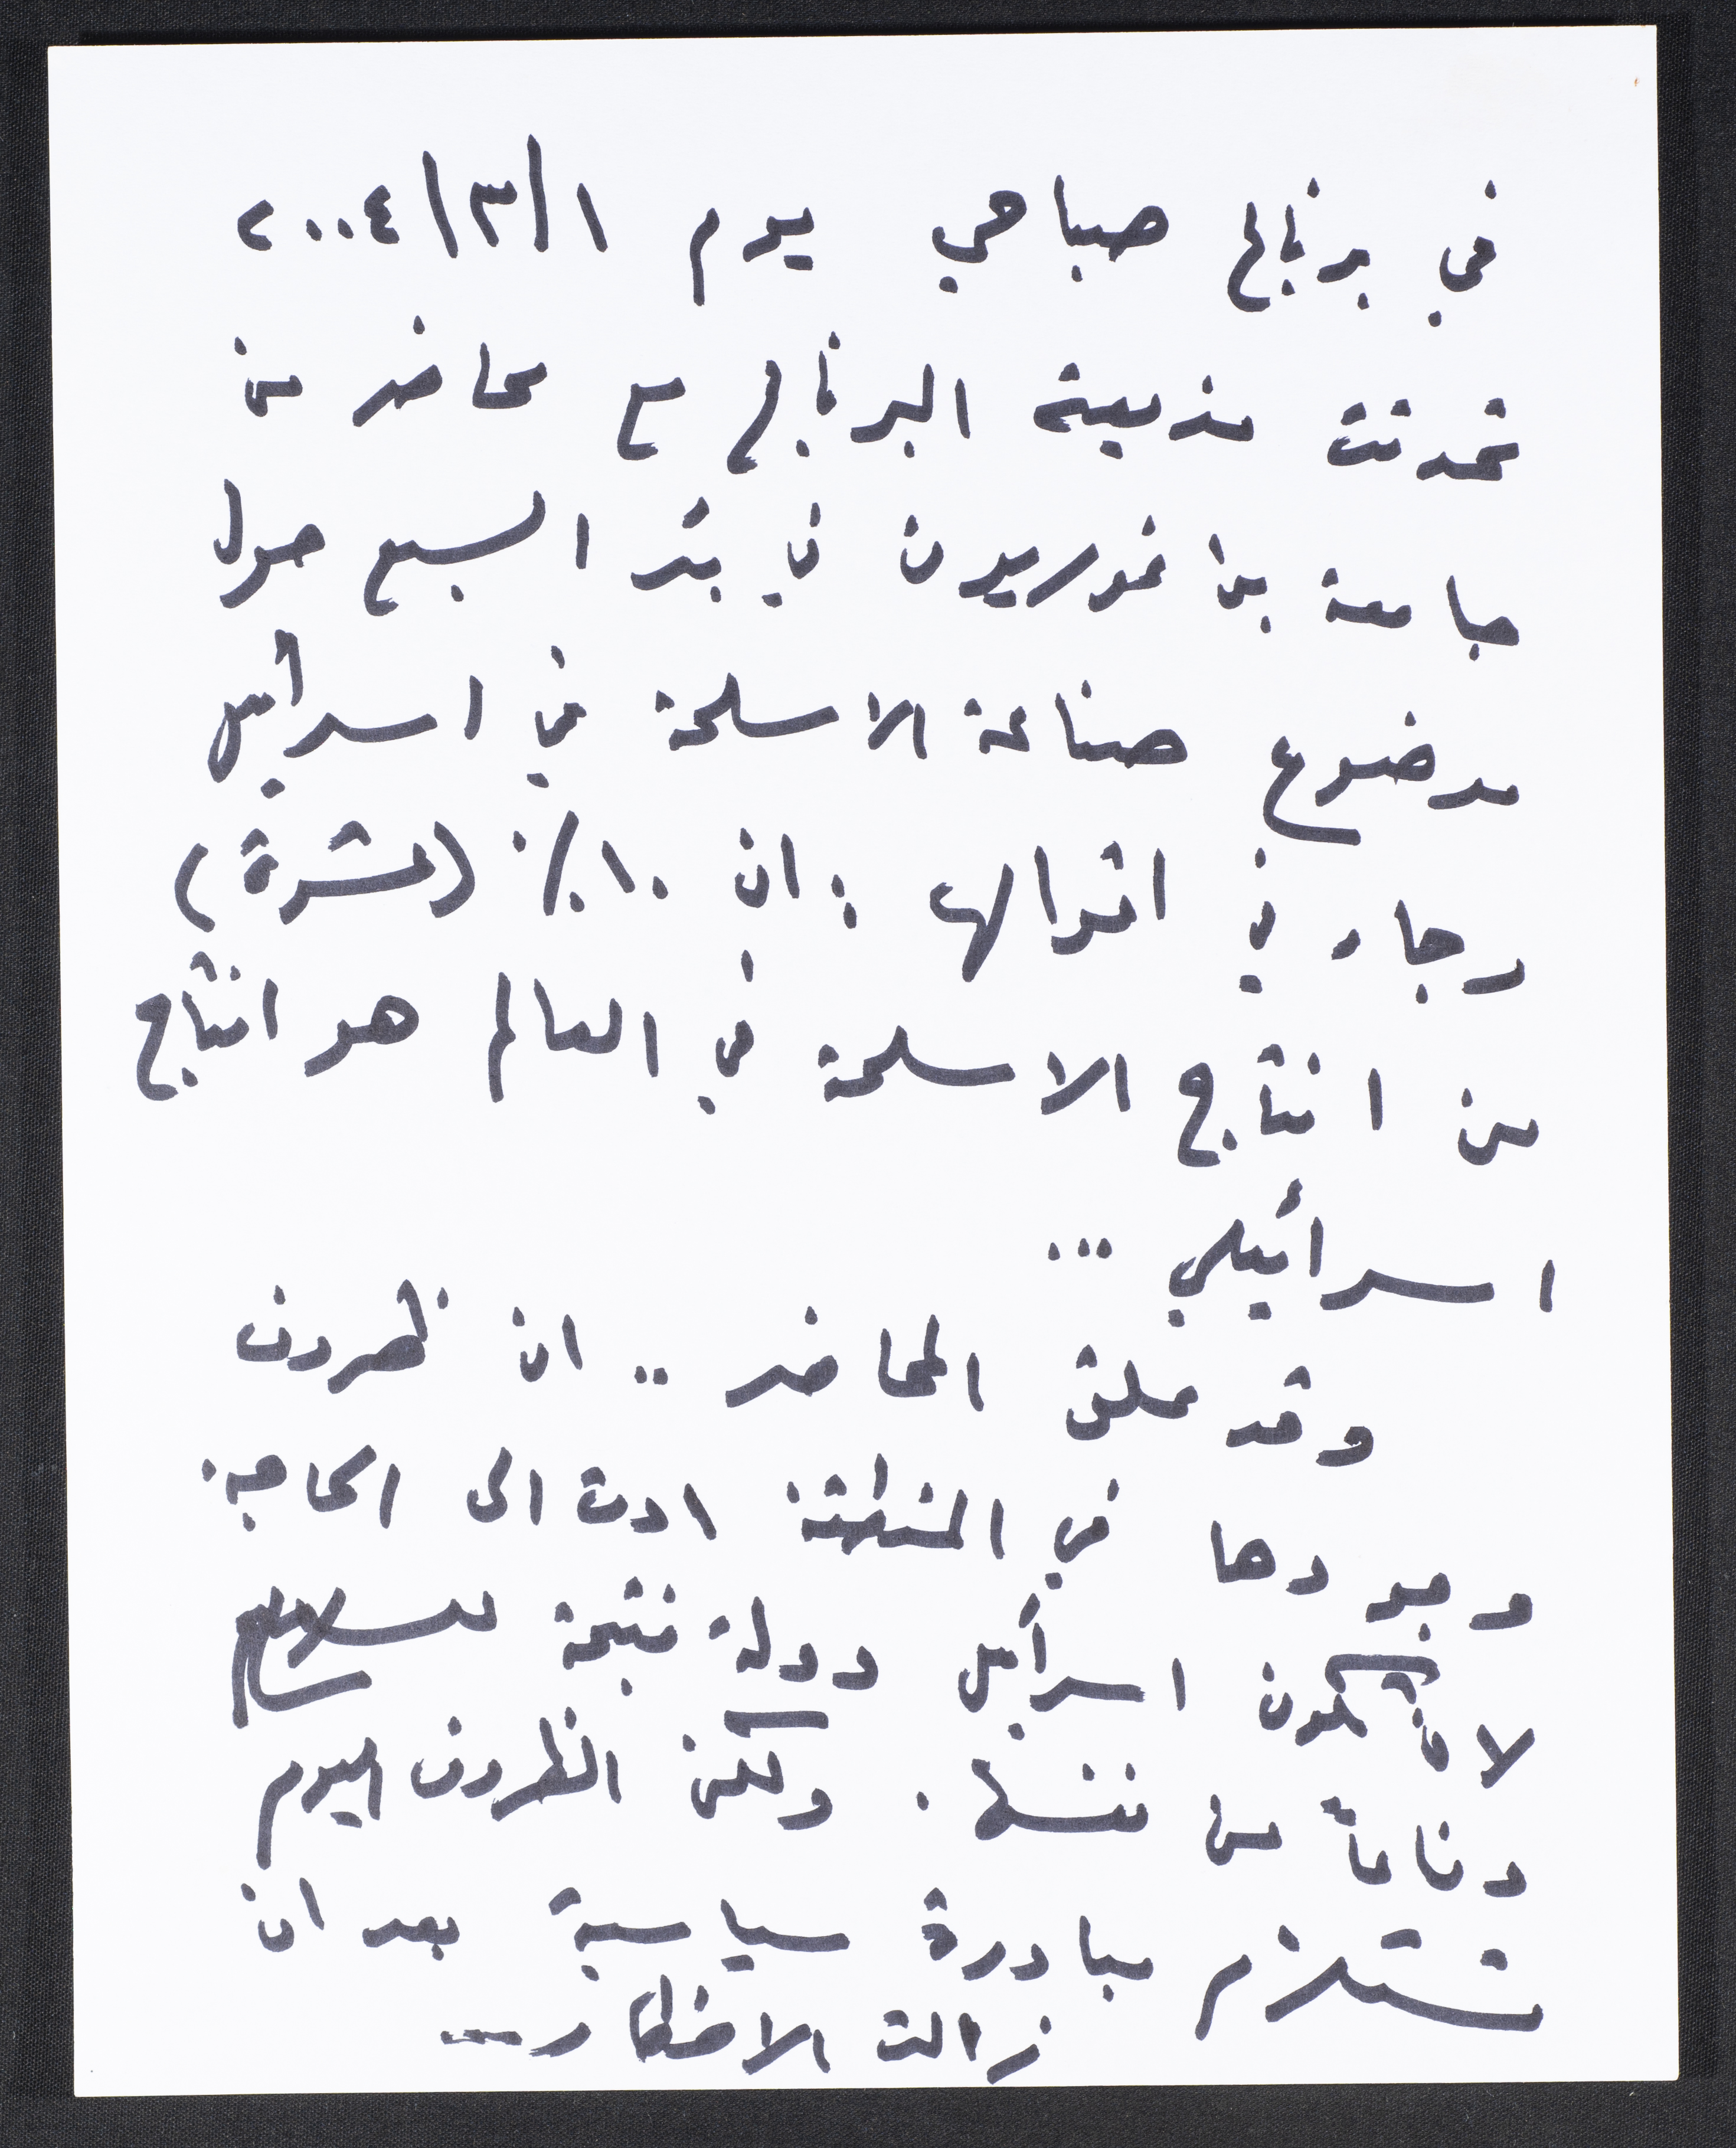 في برنامج صباحي يوم ١/٣/٢٠٠٤
تحدثت مذيعة البرنامج مع محاضر من
جامعة بن غوريون في بئر السبع حول
موضوع صناعة الاسلحة في اسرائيل
وجاء في اقوالها : ان ١٠٪ (عشرة)
من انتاج الاسلحة في العالم هو انتاج
اسرائيلي ...
وقد علق المحاضر .. ان ظروف
وجودها في المنطقة ادت الى الحاجة
لان تكون اسرائيل دولة منتجة للسلاح
دفاعاً عن نفسها . ولكن الظروف اليوم
تستلزم مبادرة سياسية بعد ان
زالت الاخطار ...